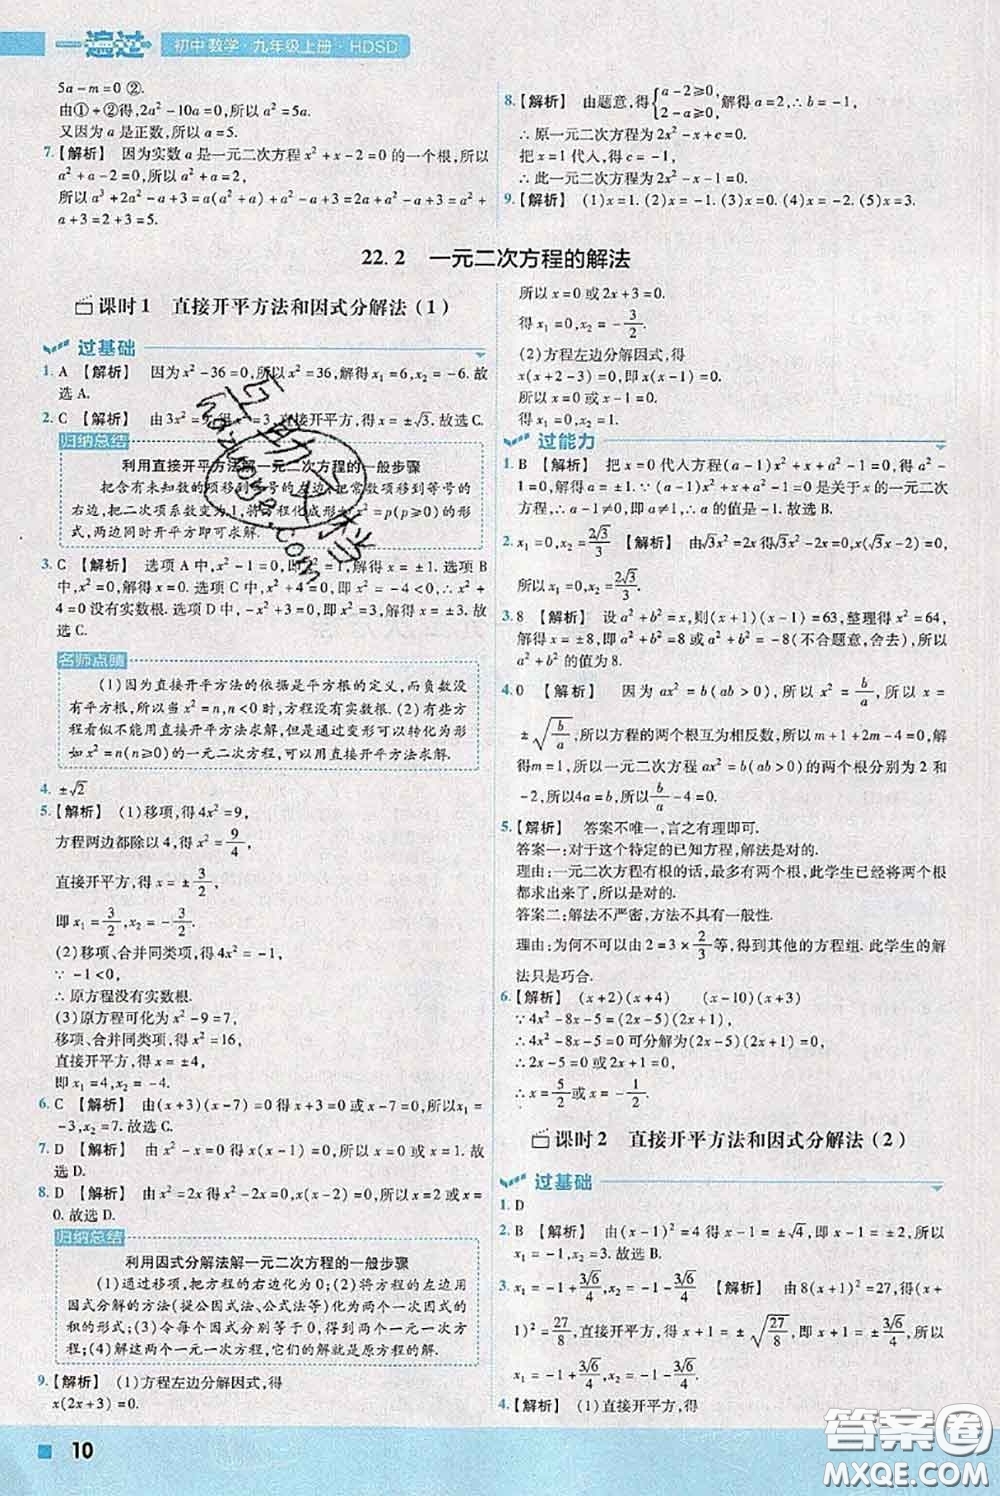 一遍过 初中 数学·九年级上册·HDSD
5a-m=0 ②.
由①+②得,2a²-10a=0,所以 a²=5a.
又因为 a 是正数,所以 a=5.
7.【解析】 因为实数 a 是一元二次方程 x²+x-2=0 的一个根,所以
a²+a-2=0,所以 a²+a=2,
所以 a³+2a²-a+3=a(a²+a)+a²-a+3=2a+a²-a+3=a²+
a+3=2+3=5.
8.【解析】 由题意,得{a-2≥0, 2-a≥0,解得 a=2,∴b=-1,
∴原一元二次方程为 2x²-x+c=0.
把 x=1 代入,得 c=-1,
∴此一元二次方程为 2x²-x-1=0.
9.【解析】 (1)x=1. (2)x=1. (3)x=0. (4)x=-2. (5)x=3.
22.2 一元二次方程的解法
课时1 直接开平方法和因式分解法(1)
过基础
1. A 【解析】 因为 x²-36=0,所以 x²=36,解得 x₁=6,x₂=-6.故
选 A.
2. C 【解析】 由 3x²=9,得 x²=3,直接开平方,得 x=±√3.故选 C.
归纳总结
利用直接开平方法解一元二次方程的一般步骤
把含有未知数的项移到等号的左边,把常数项移到等号的
右边,把二次项系数变为1,将方程化成形如x²=p(p≥0)的形
式,两边同时开平方即可求解.
3. C 【解析】 选项 A 中,x²-1=0,即 x²=1,解得 x=±1.选项 B
中,x²=0,解得 x=0.选项 C 中,x²+4=0,即 x²=-4<0,所以
x²+4=0 没有实数根.选项 D 中,-x²+3=0,即 x²=3,解得 x=±√3.故
选 C.
名师点睛
(1)因为直接开平方法的依据是平方根的定义,而负数没
有平方根,所以当 x²=n,n<0 时,方程没有实数根.(2)有些方
程看似不能用直接开平方法求解,但是通过变形可以转化为形
如 x²=n(n≥0)的一元二次方程,可以用直接开平方法求解.
4. ±√2
5.【解析】 (1)移项,得 4x²=9,
方程两边都除以 4,得 x²=9/4,
直接开平方,得 x=±3/2,
即 x₁=3/2,x₂=-3/2.
(2)移项、合并同类项,得 4x²=-1,
∵-1<0,
∴原方程没有实数根.
(3)原方程可化为 x²-9=7,
移项、合并同类项,得 x²=16,
直接开平方,得 x=±4,
即 x₁=4,x₂=-4.
6. C 【解析】 由(x+3)(x-7)=0 得 x+3=0 或 x-7=0,所以x₁=
-3,x₂=7.故选 C.
7. D 【解析】 由 x(x-1)=0 得 x=0 或 x-1=0,所以 x=0 或 x=1.
故选 D.
8. D 【解析】 由 x²=2x 得 x²-2x=0,x(x-2)=0,所以 x=2 或 x=
0.故选 D.
归纳总结
利用因式分解法解一元二次方程的一般步骤
(1)通过移项,把方程的右边化为0;(2)将方程的左边用
因式分解的方法(提公因式法、公式法等)化为两个一次因式的
积的形式;(3)令每个因式分别等于0,得到两个一元一次方
程;(4)解这两个一元一次方程,它们的解就是原方程的解.
9.【解析】 (1)方程左边分解因式,得
x(2x+3)=0.
所以 x=0 或 2x+3=0.
得 x₁=0,x₂=-3/2.
(2)方程左边分解因式,得
x(x+2-3)=0,即 x(x-1)=0.
所以 x=0 或 x-1=0.
得 x₁=0,x₂=1.
过能力
1. B 【解析】 把 x=0 代入方程(a-1)x²+x+a²-1=0,得 a²-
1=0,解得 a=±1.∵(a-1)x²+x+a²-1=0 是关于 x 的一元二次
方程,∴a-1≠0,即 a≠1,∴a 的值是-1.故选 B.
2. x₁=0,x₂=2√3/3 【解析】 由√3x²=2x得√3x²-2x=0,x(√3x-2)=0,
所以 x₁=0,x₂=2√3/3.
3. 8 【解析】 设 a²+b²=x,则(x+1)(x-1)=63,整理得 x²=64,
解得 x=±8,即 a²+b²=8 或 a²+b²=-8(不合题意,舍去),所以
a²+b² 的值为 8.
4. 0 【解析】 因为 ax²=b(ab>0),所以 x²=b/a,所以 x=
±√(b/a),所以方程的两个根互为相反数,所以 m+1+2m-4=0,解
得m=1,所以一元二次方程 ax²=b(ab>0)的两个根分别为 2 和
-2,所以4a=b,所以b/a-4=0.
5.【解析】 答案不唯一,言之有理即可.
答案一:对于这个特定的已知方程,解法是对的.
理由:一元二次方程有根的话,最多有两个根,此学生已经将两个根
都求出来了,所以是对的.
答案二:解法不严密,方法不具有一般性.
理由:为何不可以由 2=3×2/3等,得到其他的方程组.此学生的解
法只是巧合.
6.【解析】 (x+2)(x+4) (x-10)(x+3)
∵4x²-8x-5=(2x-5)(2x+1),
∴4x²-8x-5=0 可分解为(2x-5)(2x+1)=0,
∴2x-5=0 或 2x+1=0,
∴x=5/2或 x=-1/2.
课时2 直接开平方法和因式分解法(2)
过基础
1. D
2. B 【解析】 由(x-1)²=4 得 x-1=±√4,即 x-1=±2,所以
x₁=-1,x₂=3.故选 B.
3. x₁=-1+3√6/4,x₂=-1-3√6/4 【解析】 由 8(x+1)²=27,得(x+
1)²=27/8,直接开平方,得 x+1=±√(27/8),即 x+1=±3√6/4,所以
x₁=-1+3√6/4,x₂=-1-3√6/4.
4.【解析】 (1)直接开平方,得
10
答案圈
MXQE.COM